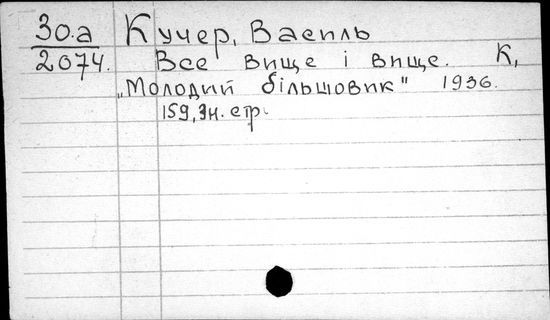 30.а Кучер, Василь
2074. Все вище і вище. К,
„Молодий більшовик" 1936.
159, 3н. стр.